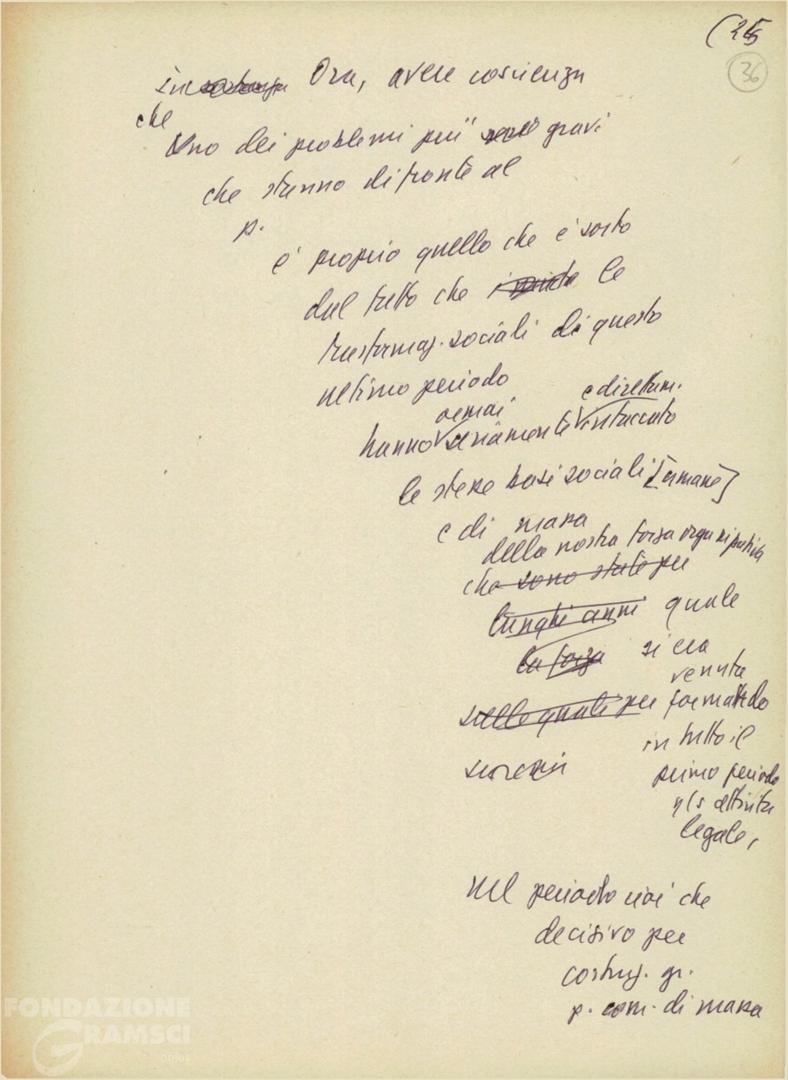 (25
36
in sostanza Ora, avere coscienza
che
Uno dei problemi più gravi
che stanno di fronte al
p.
è proprio quello che è sorto
dal fatto che le
trasformaz. sociali di questo
ultimo periodo
ormai e direttam.
hanno seriamente intaccato
le stesse basi sociali [umane]
e di massa
della nostra forza organizzativa
che sono state per
lunghi anni quale
la forza si era
venuta
sulle quali per formando
in tutto il
primo periodo
n/s attività
legale,
nel periodo cioè che
decisivo per
costruz. gr.
p. com. di massa
FONDAZIONE
GRAMSCI
onlus